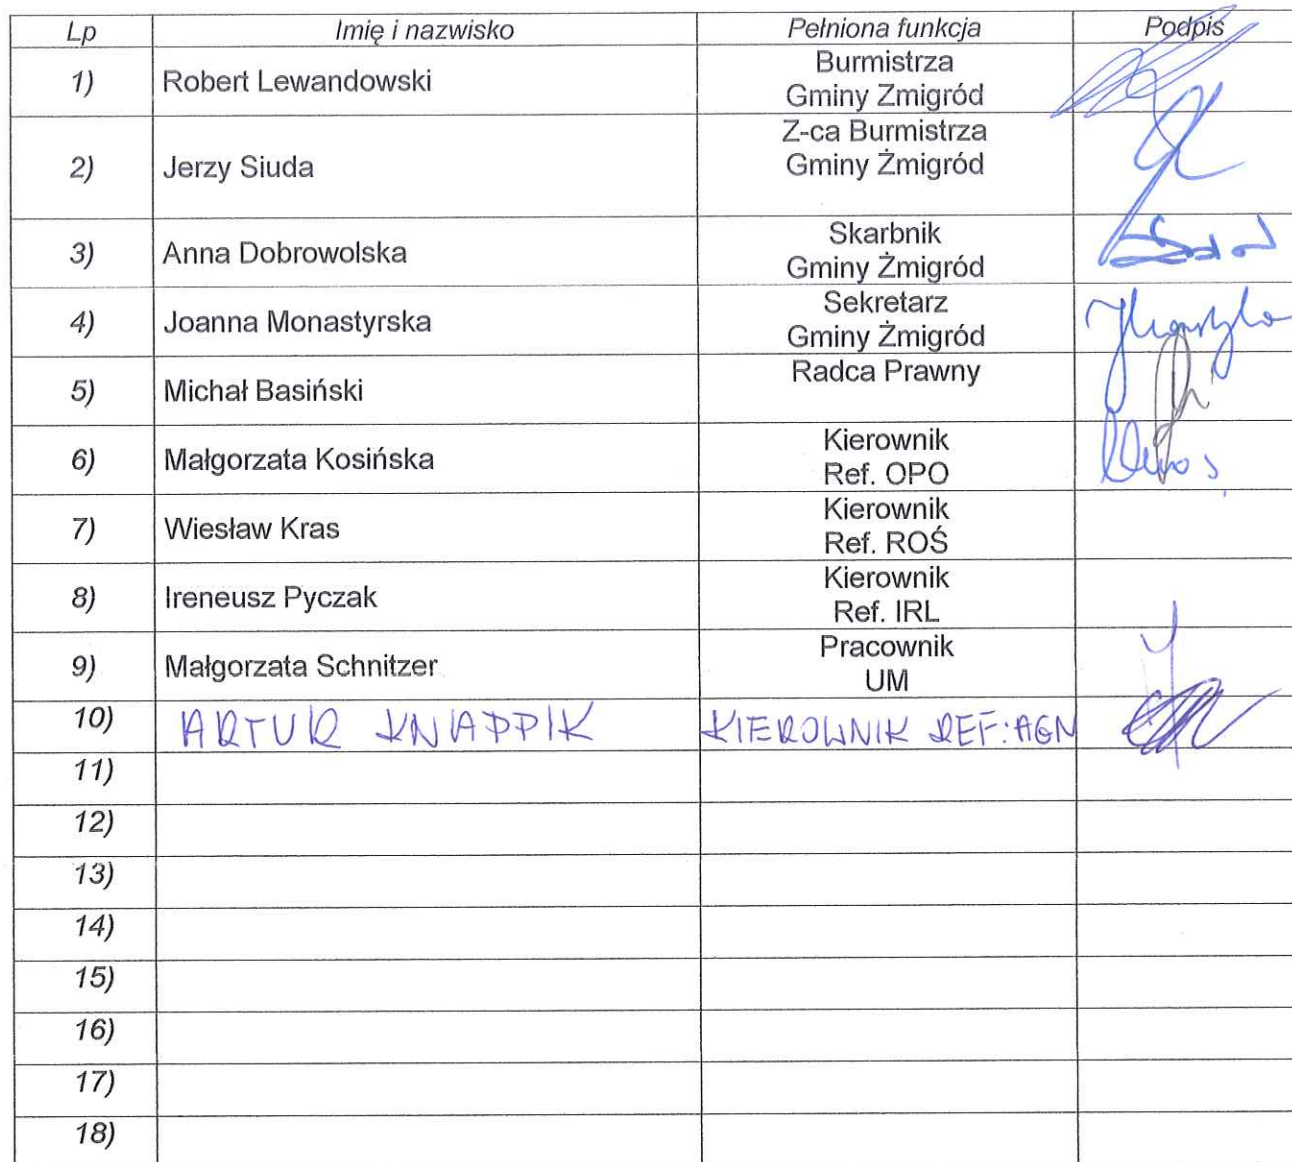 Lp Imię i nazwisko Pełniona funkcja Podpis
1) Robert Lewandowski Burmistrza
Gminy Zmigród
2) Jerzy Siuda Z-ca Burmistrza
Gminy Żmigród
3) Anna Dobrowolska Skarbnik
Gminy Żmigród
4) Joanna Monastyrska Sekretarz
Gminy Żmigród
5) Michał Basiński Radca Prawny
6) Małgorzata Kosińska Kierownik
Ref. OPO
7) Wiesław Kras Kierownik
Ref. ROŚ
8) Ireneusz Pyczak Kierownik
Ref. IRL
9) Małgorzata Schnitzer Pracownik
UM
10) ARTUR KNAPPIK KIEROWNIK REF: AGN
11)
12)
13)
14)
15)
16)
17)
18)